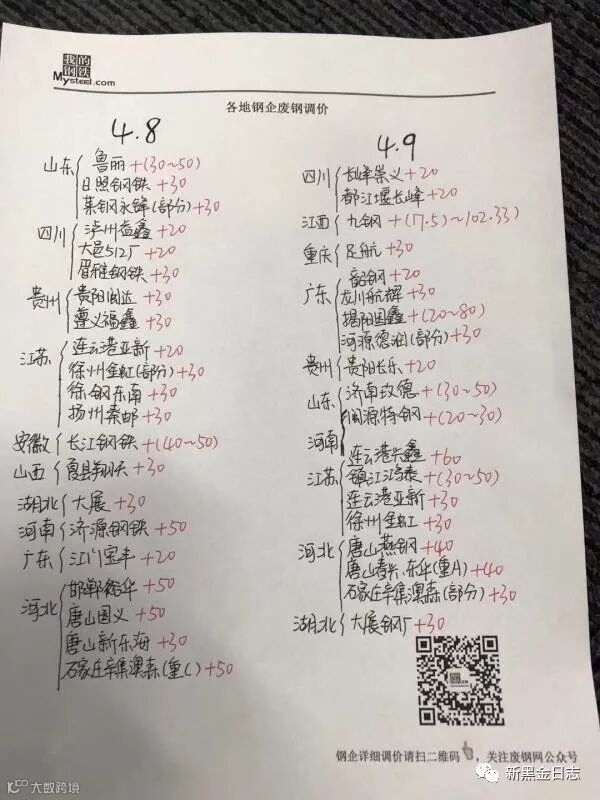 我的
钢铁
Mysteel.com
各地钢企废钢调价
4.8
山东
鲁丽 +(30~50)
日照钢铁 +30
莱钢永锋(部分) +30
四川
泸州益鑫 +20
大邑512厂 +20
眉雅钢铁 +30
贵州
贵阳闽达 +30
遵义福鑫 +30
江苏
连云港亚新 +20
徐州金虹(部分) +30
徐钢东南 +30
扬州秦邮 +30
安徽 长江钢铁 +(40~50)
山西 夏县翔天 +30
湖北 大展 +30
河南 济源钢铁 +50
广东 江门宝丰 +20
河北
邯郸裕华 +50
唐山国义 +50
唐山新东海 +30
石家庄辛集澳森(重C) +50
4.9
四川
长峰崇义 +20
都江堰长峰 +20
江西 九钢 +(17.5)~102.33)
重庆 足航 +30
广东
韶钢 +20
龙川航辉 +30
揭阳国鑫 +(20~80)
河源德润(部分) +30
贵州 贵阳长乐 +20
山东 济南玫德 +(30~50)
闽源特钢 +(20~30)
河南
江苏
连云港兴鑫 +60
镇江鸿泰 +(30~50)
连云港亚新 +30
徐州金虹 +30
河北
唐山燕钢 +40
唐山春兴、东华(重A) +40
石家庄辛集澳森(部分) +30
湖北 大展钢厂 +30
钢企详细调价请扫二维码 ,关注废钢网公众号
大数跨境
新黑金日志